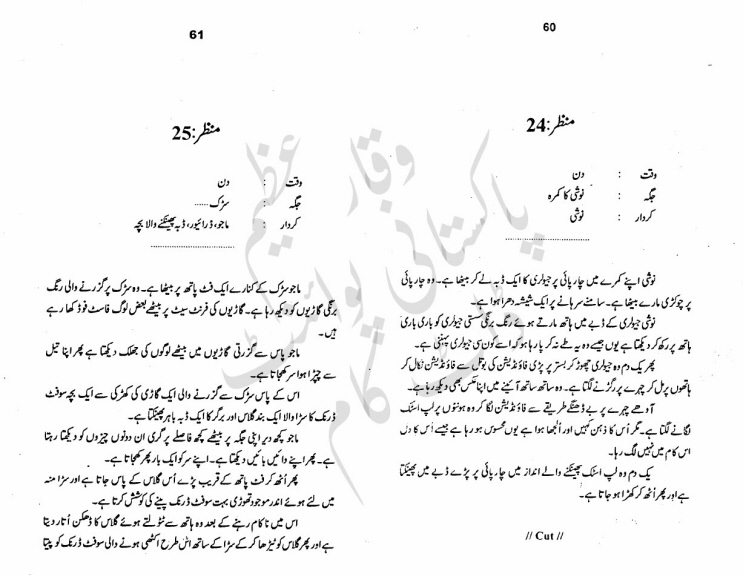 60
منظر:24
وقت : دن
جگہ : نوشی کا کمرہ
کردار : نوشی
نوشی اپنے کمرے میں چارپائی پر جیولری کا ایک ڈبہ لے کر بیٹھا ہے۔ وہ چارپائی
پر چوکڑی مارے بیٹھا ہے۔ سامنے سرہانے پر ایک شیشہ دھرا ہوا ہے۔
نوشی جیولری کے ڈبے میں ہاتھ مارتے ہوئے رنگ برنگی سستی جیولری کو باری باری
ہاتھ پر رکھ کر دیکھتا ہے یوں جیسے وہ یہ طے نہ کر پا رہا ہو کہ اسے کون سی جیولری پہننی ہے۔
پھر یک دم وہ جیولری چھوڑ کر بستر پر پڑی فاؤنڈیشن کی بوتل سے فاؤنڈیشن نکال کر
ہاتھوں پر مل کر چہرے پر رگڑنے لگتا ہے۔ وہ ساتھ ساتھ آئینے میں اپنا عکس بھی دیکھ رہا ہے۔
آدھے چہرے پر بے ڈھنگے طریقے سے فاؤنڈیشن لگا کر وہ ہونٹوں پر لپ اسٹک
لگانے لگتا ہے۔ مگر اُس کا ذہن کہیں اور اُلجھا ہوا ہے یوں محسوس ہو رہا ہے جیسے اُس کا دل
اس کام میں نہیں لگ رہا۔
یک دم وہ لپ اسٹک پھینکنے والے انداز میں چارپائی پر پڑے ڈبے میں پھینکتا
ہے اور پھر اُٹھ کر کھڑا ہو جاتا ہے۔
// Cut //
61
منظر:25
وقت : دن
جگہ : سڑک......
کردار : ماجو، ڈرائیور، ڈبہ پھینکنے والا بچہ
ماجو سڑک کے کنارے ایک فٹ پاتھ پر بیٹھا ہے۔ وہ سڑک پر گزرنے والی رنگ
برنگی گاڑیوں کو دیکھ رہا ہے۔ گاڑیوں کی فرنٹ سیٹ پر بیٹھے بعض لوگ فاسٹ فوڈ کھا رہے
ہیں۔
ماجو پاس سے گزرتی گاڑیوں میں بیٹھے لوگوں کی جھلک دیکھتا ہے پھر اپنا تیل
سے چپڑا ہوا سر کھجاتا ہے۔
اس کے پاس سڑک سے گزرنے والی ایک گاڑی کی کھڑکی سے ایک بچہ سوفٹ
ڈرنک کا سڑا والا ایک بند گلاس اور برگر کا ایک ڈبہ باہر پھینکتا ہے۔
ماجو کچھ دیر اپنی جگہ پر بیٹھے کچھ فاصلے پر گری ان دونوں چیزوں کو دیکھتا رہتا
ہے۔ پھر اپنے دائیں بائیں دیکھتا ہے۔ اپنے سر کو ایک بار پھر کھجاتا ہے۔
پھر اُٹھ کر فٹ پاتھ کے قریب پڑے اُس گلاس کے پاس جاتا ہے اور سڑا منہ
میں لئے ہوئے اندر موجود تھوڑی بہت سوفٹ ڈرنک پینے کی کوشش کرتا ہے۔
اس میں ناکام رہنے کے بعد وہ ہاتھ سے ٹٹولتے ہوئے گلاس کا ڈھکن اُتار دیتا
ہے اور پھر گلاس کو ٹیڑھا کر کے سڑا کے ساتھ اس طرح اکٹھی ہونے والی سوفٹ ڈرنک کو پیتا
پاکستانی پوائنٹ ڈاٹ کام
وقار عظیم